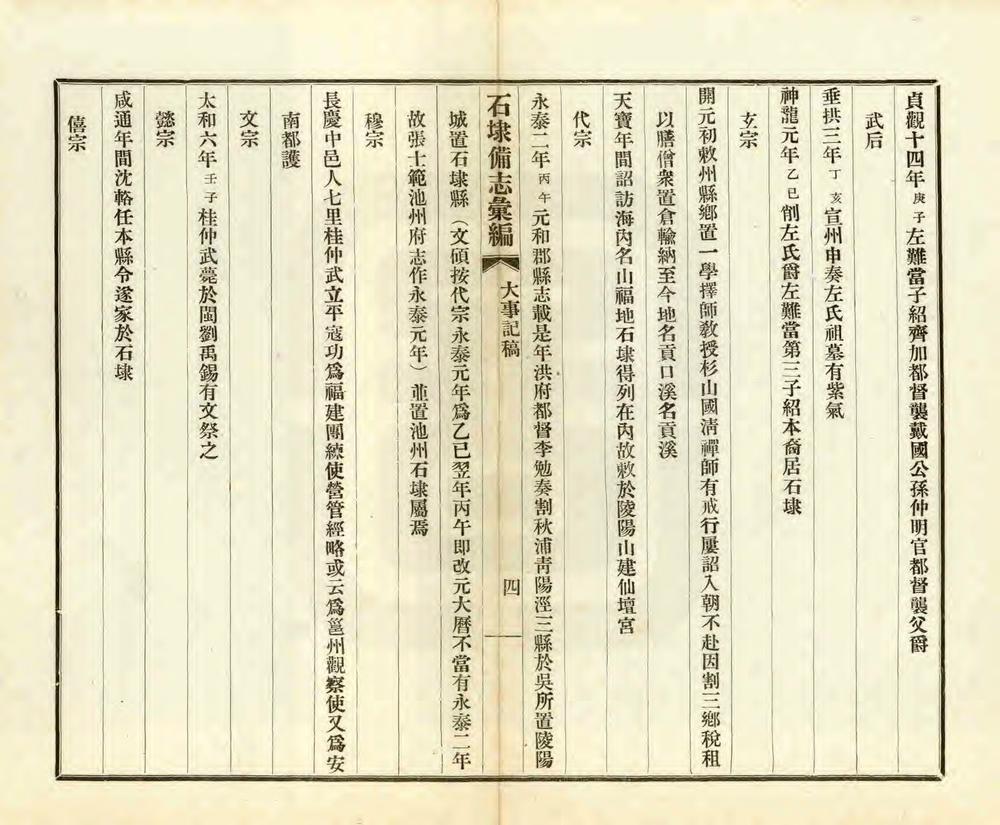 貞觀十四年庚子左難當子紹齊加都督襲戴國公孫仲明官都督襲父爵
武后
垂拱三年丁亥宣州申奏左氏祖墓有紫氣
神龍元年乙巳削左氏爵左難當第三子紹本裔居石埭
玄宗
開元初敕州縣鄉置一學擇師敎授杉山國淸禪師有戒行屢詔入朝不赴因割三鄉稅租
以膳僧衆置倉輸納至今地名貢口溪名貢溪
天寶年間詔訪海內名山福地石埭得列在內故敕於陵陽山建仙壇宮
代宗
永泰二年丙午元和郡縣志載是年洪府都督李勉奏割秋浦靑陽涇三縣於吳所置陵陽
石埭備志彙編
大事記稿
四
城置石埭縣（文碩按代宗永泰元年爲乙巳翌年丙午即改元大曆不當有永泰二年
故張士範池州府志作永泰元年）並置池州石埭屬焉
穆宗
長慶中邑人七里桂仲武立平寇功爲福建團練使營管經略或云爲邕州觀察使又爲安
南都護
文宗
太和六年壬子桂仲武薨於閩劉禹錫有文祭之
懿宗
咸通年間沈輅任本縣令遂家於石埭
僖宗